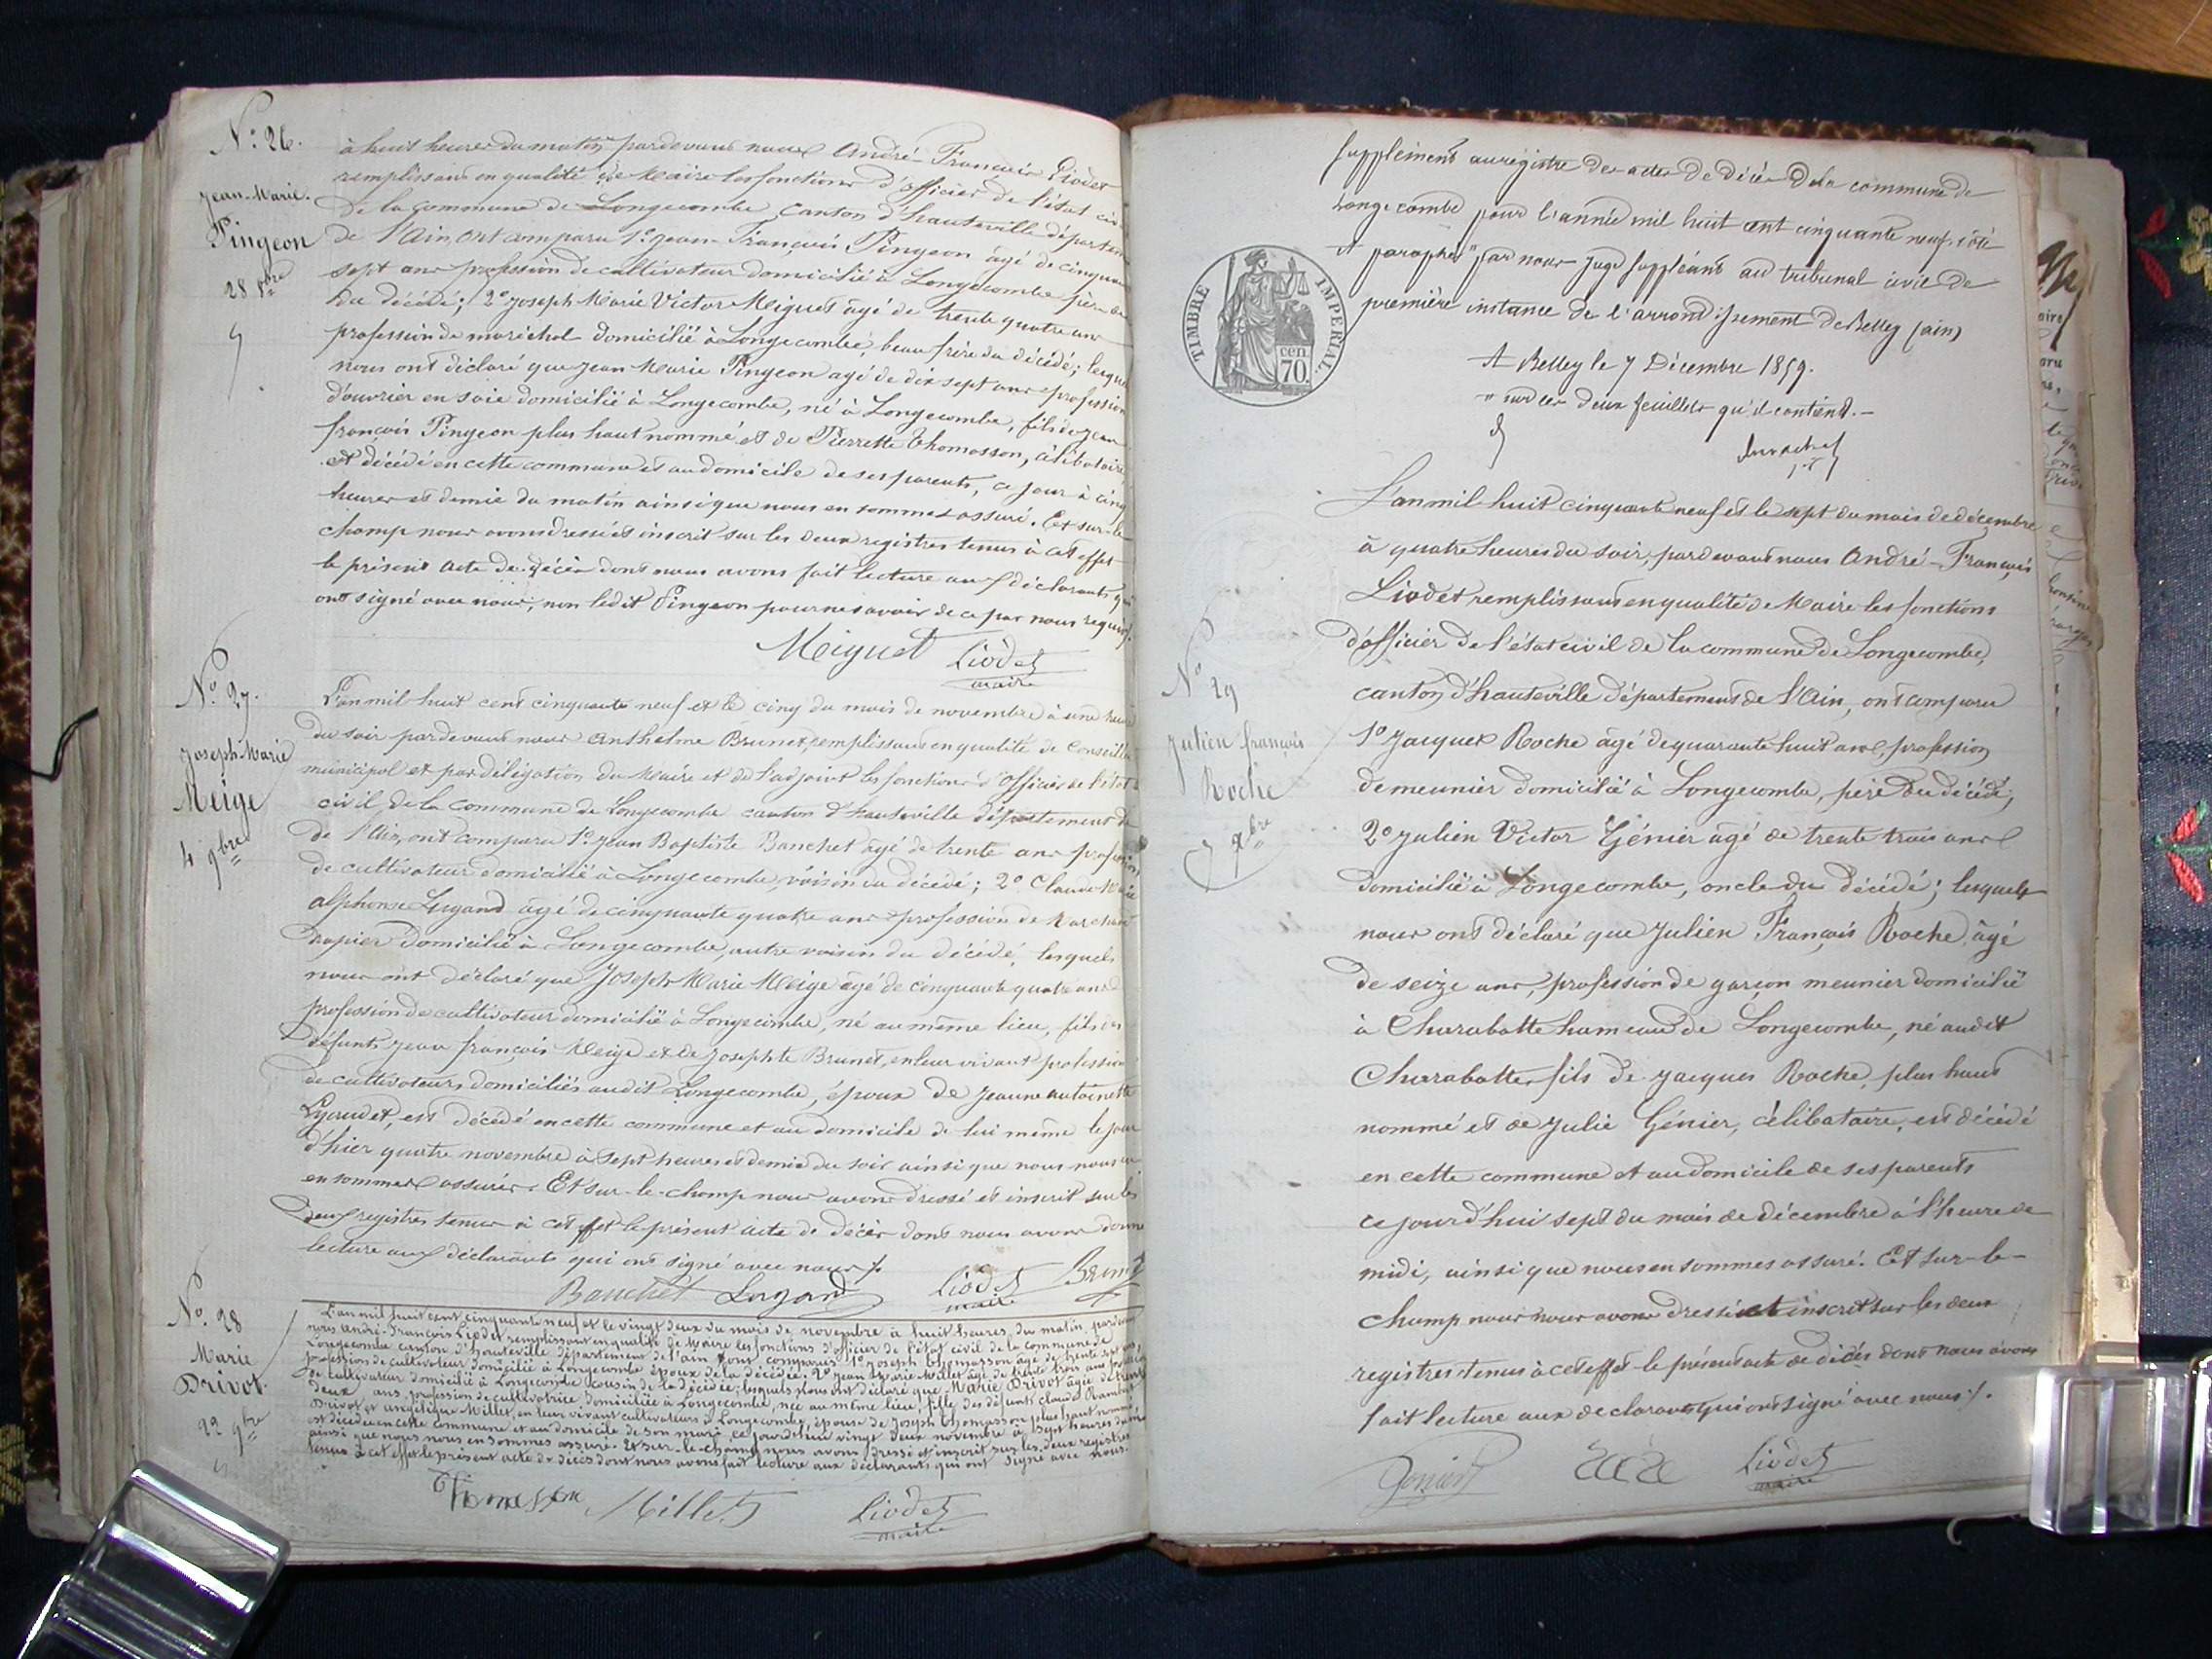 N° 26.
Jean-Marie.
Pingeon
28 8bre
à huit heures du matin pardevant nous André-François Liodet
remplissant en qualité de Maire les fonctions d'officier de l'état civ
de la commune de Longecombe canton d'hauteville départem
de l'Ain, ont comparu 1° Jean-François Pingeon âgé de cinquan
sept ans profession de cultivateur domicilié à Longecombe père
du décédé; 2° Joseph Marie Victor Meiguet âgé de trente quatre ans
profession de maréchal domicilié à Longecombe, beau frère du décédé; lesque
nous ont déclaré que Jean Marie Pingeon agé de dix sept ans profession
d'ouvrier en soie domicilié à Longecombe, né à Longecombe, fils de Jean
françois Pingeon plus haut nommé et de Pierrette Thomasson, célibataire
est décédé en cette commune et au domicile de ses parents, ce jour à cinq
heures et demie du matin ainsi que nous en sommes assuré. Et sur-le
champ nous avons dressé et inscrit sur les deux registres tenus à cet effet
le présent acte de décès dont nous avons fait lecture aux déclarants qui
ont signé avec nous, non ledit Pingeon pour ne savoir de ce par nous requis.
Meiguet Liodet
maire
N° 27.
Joseph-Marie
Meige
4 9bre
L'an mil huit cent cinquante neuf et le cinq du mois de novembre à une heure
du soir pardevant nous Anthelme Brunet, remplissant en qualité de Conseiller
municipal et par délégation du Maire et de l'adjoint les fonctions d'officier de l'état
civil de la commune de Longecombe canton d'hauteville département de
de l'Ain, ont comparu 1° Jean Baptiste Banchet âgé de trente ans profession
de cultivateur domicilié à Longecombe, voisin du décédé; 2° Claude Marie
alphonse Lugand âgé de cinquante quatre ans profession de Marchand
drapier domicilié à Longecombe, autre voisin du décédé, lesquels
nous ont déclaré que Joseph Marie Meige âgé de cinquante quatre ans
profession de cultivateur domicilié à Longecombe, né au même lieu, fils des
défunts Jean françois Meige et de Josephte Brunet, en leur vivant profession
de cultivateurs domiciliés audit Longecombe, époux de Jeanne antoinette
est décédé en cette commune et au domicile de lui même le jour
d'hier quatre novembre à sept heures et demie du soir ainsi que nous nous
en sommes assurés. Et sur-le-champ nous avons dressé et inscrit sur les
deux registres tenus à cet effet le présent acte de décès dont nous avons donné
lecture aux déclarants qui ont signé avec nous %.
Banchet Lugand Liodet Brunet
maire
N° 28
Marie
Drivot.
22 9bre
L'an mil huit cent cinquante neuf et le vingt deux du mois de novembre à huit heures du matin, pardevant
nous André-François Liodet remplissant en qualité de Maire les fonctions d'officier de l'état civil de la commune de
Longecombe canton d'hauteville département de l'ain sont comparus 1° Joseph Thomasson âgé de trente
profession de cultivateur domicilié à Longecombe époux de la décédée. 2° Jean Marie Millet âgé de trente trois ans profession
de cultivateur domicilié à Longecombe cousin de la décédée; lesquels nous ont déclaré que Marie Drivot âgée de trente
deux ans, profession de cultivatrice domiciliée à Longecombe, née au même lieu, fille des défunts claude Rambert
Drivot et angélique Millet, en leur vivant cultivateurs à Longecombe, épouse de Joseph Thomasson plus haut nommé
est décédée en cette commune et au domicile de son mari ce jourd'hui vingt deux novembre à sept heures du matin
ainsi que nous nous en sommes assuré. Et sur-le-champ nous avons dressé et inscrit sur les deux registres
tenus à cet effet le présent acte de décès dont nous avons fait lecture aux déclarants qui ont signé avec nous.
Thomasson Millet Liodet
maire
Supplément au registre des actes de décès de la commune de
Longecombe pour l'année mil huit cent cinquante neuf coté
et paraphé par nous juge suppléant au tribunal civil de
première instance de l'arrondissement de Belley (ain)
A Belley le 7 Décembre 1859.
sur les deux feuillets qu'il contient.-
TIMBRE IMPERIAL.
cen.
70.
N° 29
Julien françois
Roche
7 Xbre
L'an mil huit cinquante neuf et le sept du mois de décembre
à quatre heures du soir, pardevant nous André-François
Liodet remplissant en qualité de Maire les fonctions
d'officier de l'état civil de la commune de Longecombe,
canton d'hauteville département de l'Ain, ont comparu
1° Jacques Roche âgé de quarante-huit ans, profession
de meunier domicilié à Longecombe, père du décédé;
2° Julien Victor Génier âgé de trente trois ans
domicilié à Longecombe, oncle du décédé; lesquels
nous ont déclaré que Julien François Roche, âgé
de seize ans, profession de garçon meunier domicilié
à Charabotte hameau de Longecombe, né audit
Charabotte, fils de Jacques Roche, plus haut
nommé et de Julie Génier, célibataire, est décédé
en cette commune et au domicile de ses parents
ce jourd'hui sept du mois de décembre à l'heure de
midi, ainsi que nous en sommes assuré. Et sur-le-
champ nous nous avons dressé et inscrit sur les deux
registres tenus à cet effet le présent acte de décès dont nous avons
fait lecture aux déclarants qui ont signé avec nous %.
Genier Liodet
maire